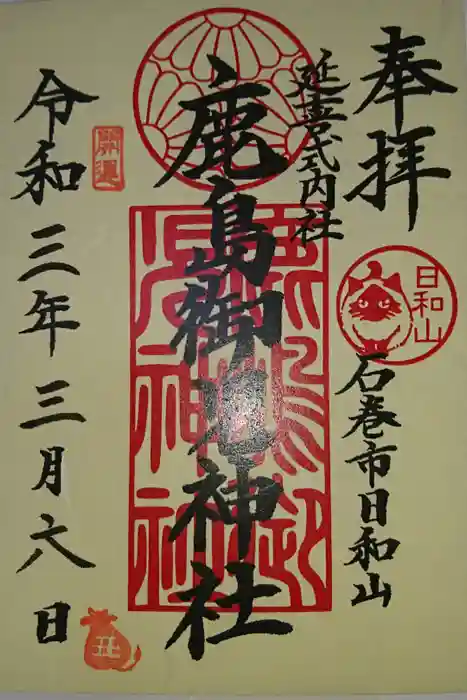 奉拝
延喜式内社
石巻市日和山
日和山
鹿島御児神社
令和三年三月六日
開運
丑